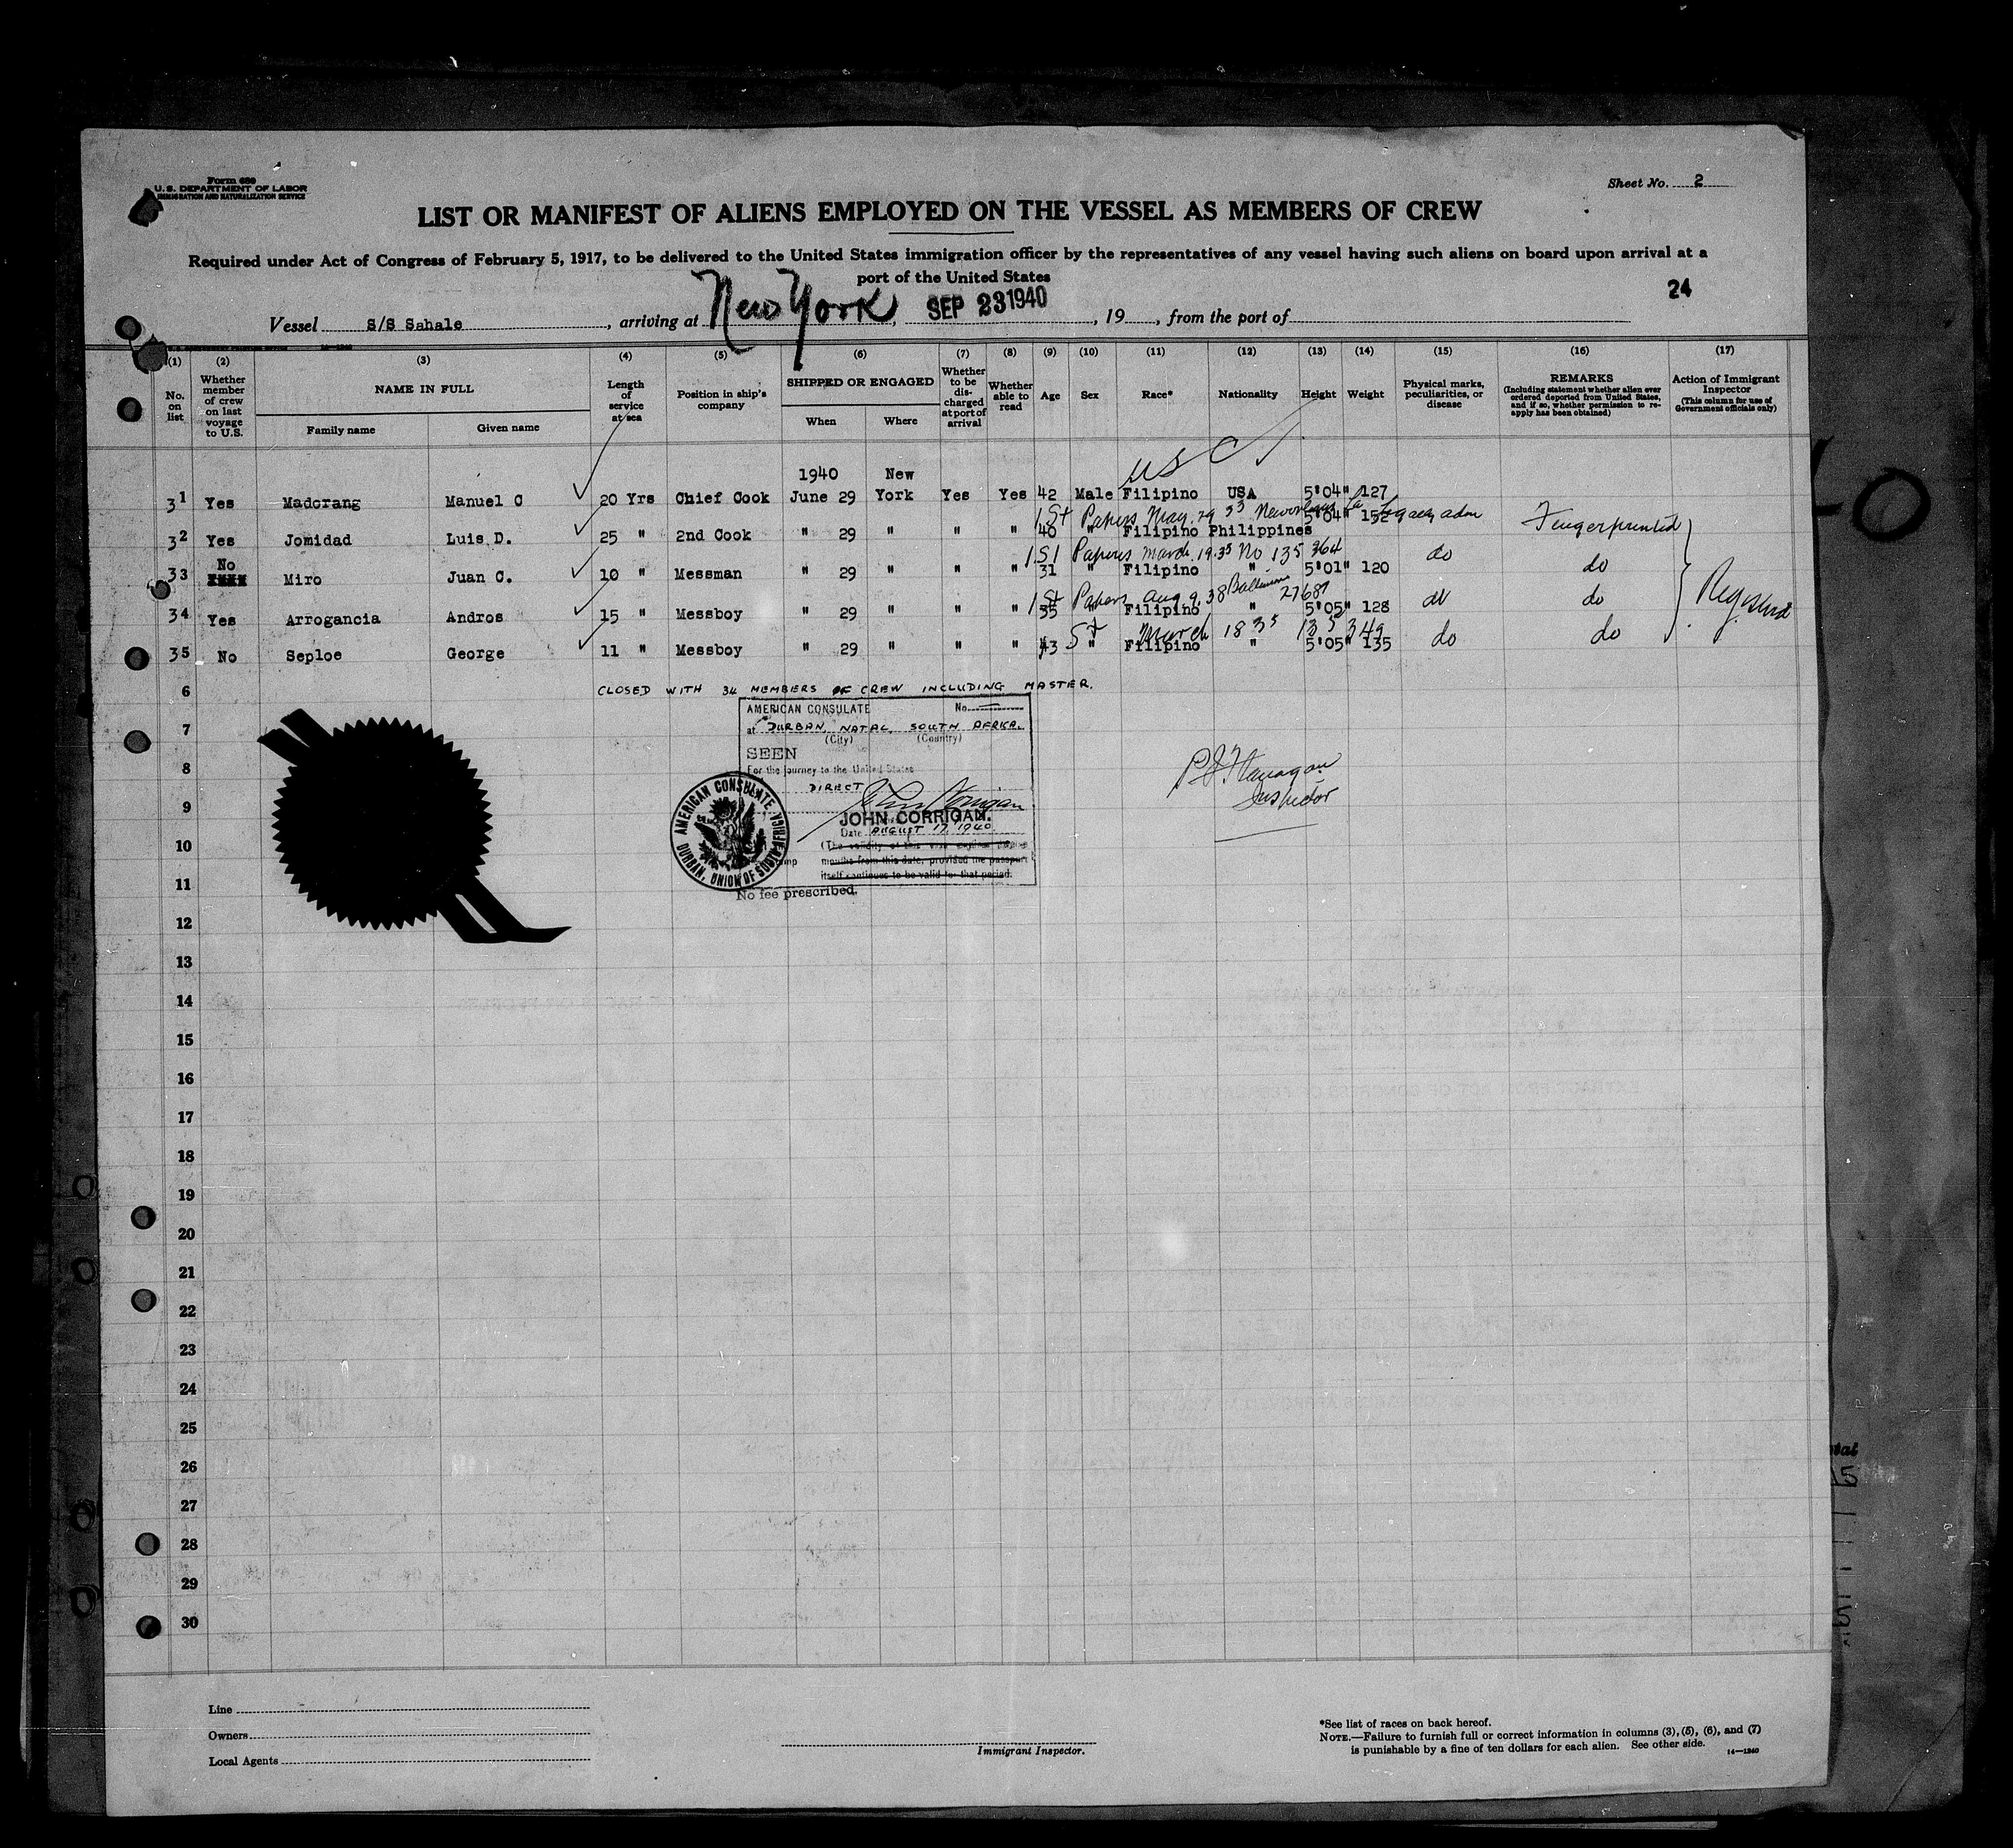 Form 689
U. S. DEPARTMENT OF LABOR
IMMIGRATION AND NATURALIZATION SERVICE
Sheet No. 2
LIST OR MANIFEST OF ALIENS EMPLOYED ON THE VESSEL AS MEMBERS OF CREW
Required under Act of Congress of February 5, 1917, to be delivered to the United States immigration officer by the representatives of any vessel having such aliens on board upon arrival at a
port of the United States
24
Vessel S/S Sahale, arriving at New York, SEP 23 1940, 19, from the port of
(1) (2) (3) (4) (5) (6) (7) (8) (9) (10) (11) (12) (13) (14) (15) (16) (17)
No. on list
Whether member of crew on last voyage to U.S.
NAME IN FULL
Family name
Given name
Length of service at sea
Position in ship's company
SHIPPED OR ENGAGED
When
Where
Whether to be discharged at port of arrival
Whether able to read
Age
Sex
Race*
Nationality
Height
Weight
Physical marks, peculiarities, or disease
REMARKS
(Including statement whether alien ever ordered deported from United States, and if so, whether permission to reapply has been obtained)
Action of Immigrant Inspector
(This column for use of Government officials only)
1940 New
USC
31 Yes Madorang Manuel C 20 Yrs Chief Cook June 29 York Yes Yes 42 Male Filipino USA 5'04" 127
1st Papers May 29 33
32 Yes Jomidad Luis D. 25 " 2nd Cook " 29 " " " 40 " Filipino Philippines 5'04" 152 Fingerprinted
1st Papers March 19 35 No 135 364
No
33 Miro Juan C. 10 " Messman " 29 " " " 31 " Filipino " 5'01" 120 do do
1st Papers Aug 9, 38 Baltimore 27687
34 Yes Arrogancia Andros 15 " Messboy " 29 " " " 35 " Filipino " 5'05" 128 do do
St March 18 35 135 349
35 No Seploe George 11 " Messboy " 29 " " " 43 " Filipino " 5'05" 135 do do
Registered
CLOSED WITH 34 MEMBERS OF CREW INCLUDING MASTER.
AMERICAN CONSULATE No. —
at DURBAN, NATAL, SOUTH AFRICA.
(City) (Country)
SEEN
For the journey to the United States
DIRECT
John Corrigan
JOHN CORRIGAN.
Date AUGUST 17, 1940
(The validity of this visa expires
months from this date, provided the passport
itself continues to be valid for that period.
No fee prescribed.
AMERICAN CONSULATE, DURBAN, UNION OF SOUTH AFRICA
P J Flanagan
Inspector
6
7
8
9
10
11
12
13
14
15
16
17
18
19
20
21
22
23
24
25
26
27
28
29
30
Line
Owners
Local Agents
Immigrant Inspector.
*See list of races on back hereof.
NOTE.—Failure to furnish full or correct information in columns (3), (5), (6), and (7)
is punishable by a fine of ten dollars for each alien. See other side.
14—1240